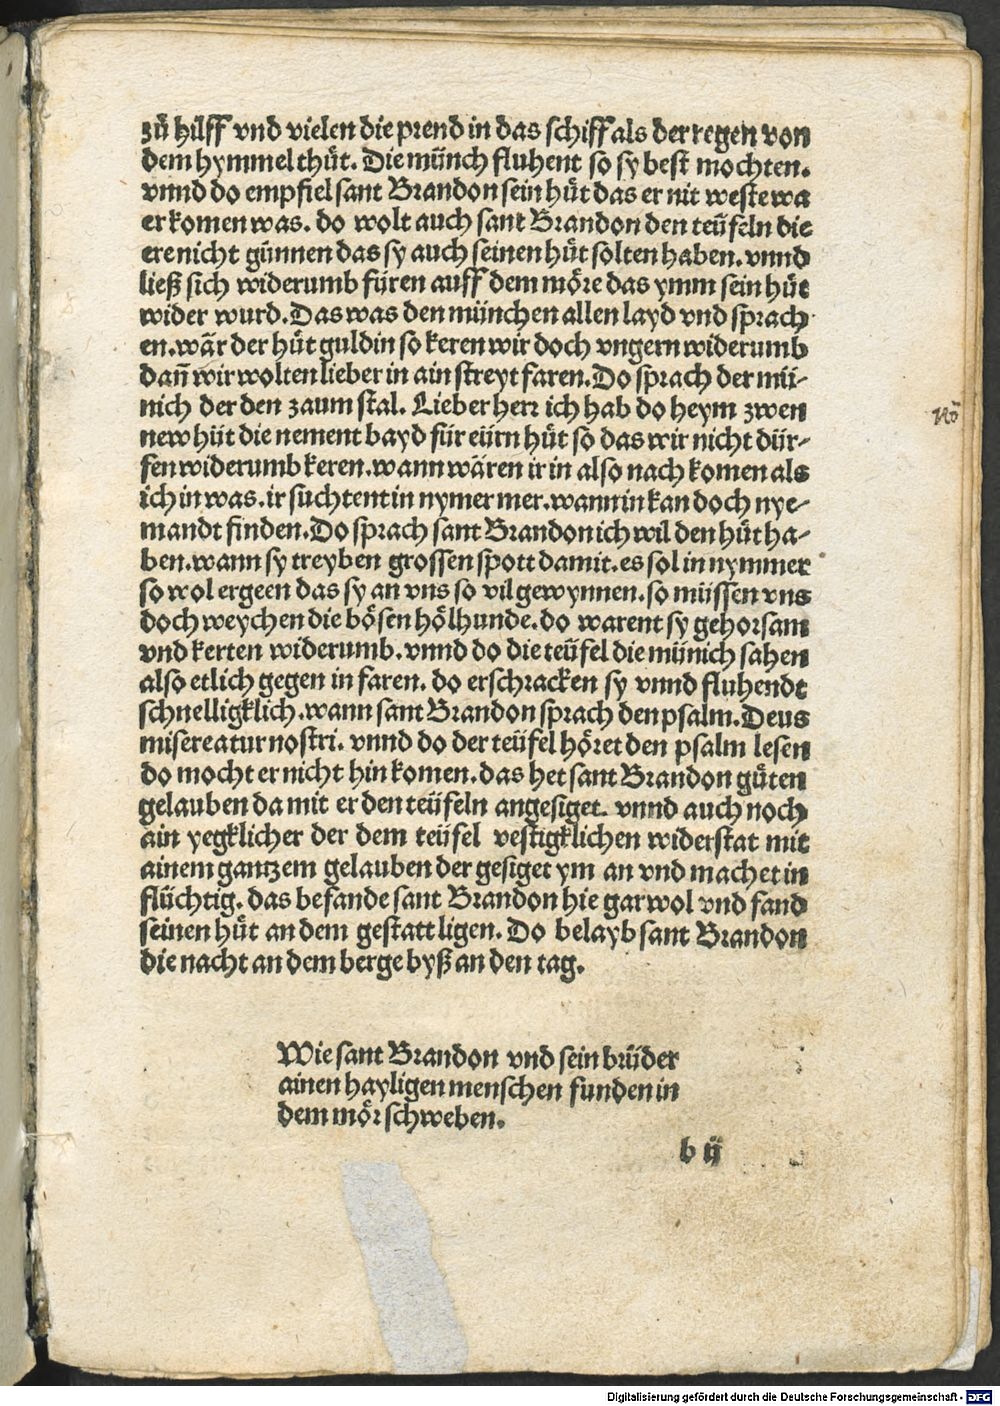 zů hilff vnd vielen die prend in das schiff als der regen von
dem hymmel thůt. Die münch fluhent so sy best mochten.
vnnd do empfiel sant Brandon sein hůt das er nit weste wa
er komen was. do wolt auch sant Brandon den teüfeln die
ere nicht günnen das sy auch seinen hůt solten haben. vnnd
ließ sich widerumb füren auff dem möre das ymm sein hůt
wider wurd. Das was den münchen allen layd vnd sprach
en. wär der hůt guldin so keren wir doch vngern widerumb
dañ wir wolten lieber in ain streyt faren. Do sprach der mü-
nich der den zaum stal. Lieber herr ich hab do heym zwen
new hüt die nement bayd für eürn hůt so das wir nicht dür-
fen widerumb keren. wann wären ir in also nach komen als
ich in was. ir suchtent in nymer mer. wann in kan doch nye-
mandt finden. Do sprach sant Brandon ich wil den hůt ha-
ben. wann sy treyben grossen spott damit. es sol in nymmer
so wol ergeen das sy an vns so vil gewynnen. so müssen vns
doch weychen die bösen hölhunde. do warent sy gehorsam
vnd kerten widerumb. vnnd do die teüfel die münich sahen
also etlich gegen in faren. do erschracken sy vnnd fluhendt
schnelligklich. wann sant Brandon sprach den psalm. Deus
misereatur nostri. vnnd do der teüfel höret den psalm lesen
do mocht er nicht hin komen. das het sant Brandon gůten
gelauben da mit er den teüfeln angesiget. vnnd auch noch
ain yegklicher der dem teüfel vestigklichen widerstat mit
ainem gantzem gelauben der gesiget ym an vnd machet in
flüchtig. das befande sant Brandon hie gar wol vnd fand
seinen hůt an dem gestatt ligen. Do belayb sant Brandon
die nacht an dem berge byß an den tag.
Wie sant Brandon vnd sein brüder
ainen hayligen menschen funden in
dem mör schweben.
b ij
Digitalisierung gefördert durch die Deutsche Forschungsgemeinschaft - DFG